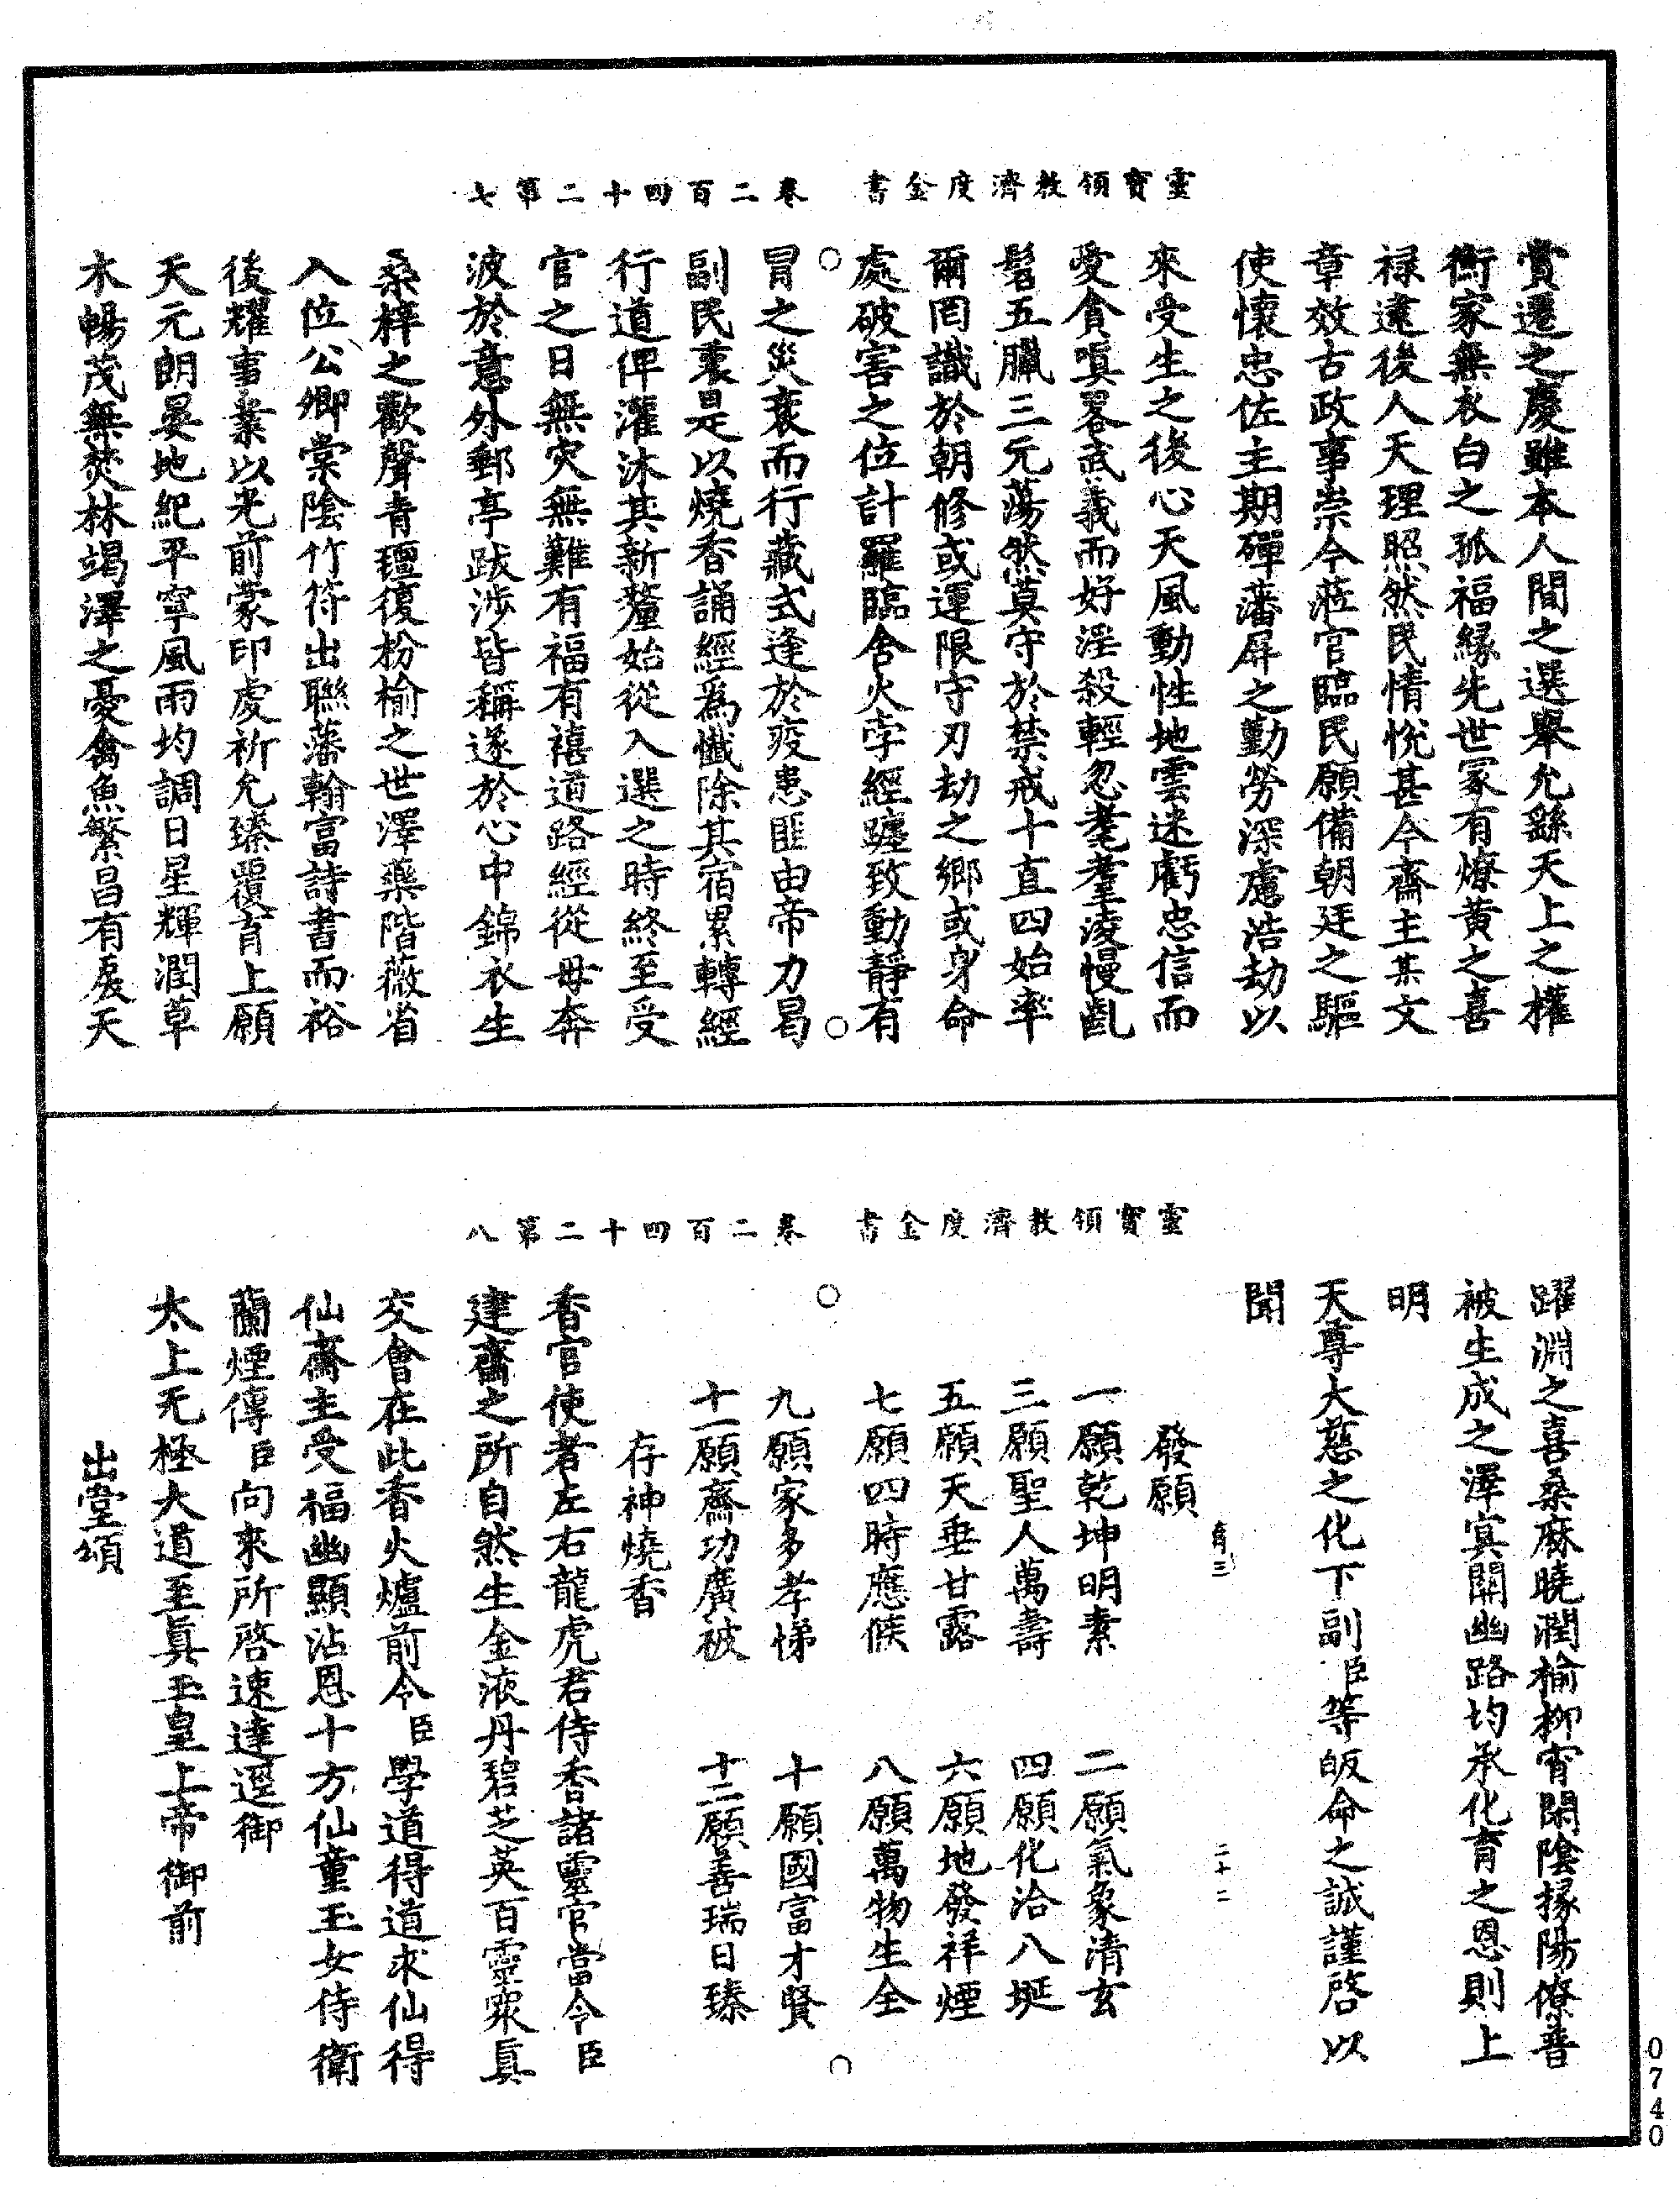 靈寶領教濟度金書　卷二百四十二第七
賞遷之慶雖本人間之選舉允繇天上之權
衡家無衣白之孤福緣先世冢有燎黃之喜
祿逮後人天理照然民情悅甚今齋主某文
章效古政事崇今蒞官臨民願備朝廷之驅
使懷忠佐主期殫藩屏之勤勞深慮浩劫以
來受生之後心天風動性地雲迷虧忠信而
愛貪嗔畧武義而好淫殺輕忽耄耋淩慢齓
髫五臘三元蕩然莫守於禁戒十直四始率
爾罔識於朝修或運限守刃劫之鄉或身命
處破害之位計羅臨舍火孛經躔致動靜有
冐之災衰而行藏式逢於疫患匪由帝力曷
副民衷是以燒香誦經爲懺除其宿累轉經
行道俾灌沐其新釐始從入選之時終至受
官之日無灾無難有福有禧道路經從毋奔
波於意外郵亭跋涉皆稱遂於心中錦衣生
桑梓之歡聲青氊復枌榆之世澤藥階薇省
入位公卿棠陰竹符出聯藩翰富詩書而裕
後耀事業以光前蒙印處祈允臻覆育上願
天元朗晏地紀平寧風雨均調日星輝潤草
木暢茂無焚林竭澤之憂禽魚繁昌有戾天
靈寶領教濟度金書　卷二百四十二第八
躍淵之喜桑麻曉潤榆柳宵閑陰掾陽僚普
被生成之澤㝠關幽路均承化育之恩則上
明
天尊大慈之化下副臣等皈命之誠謹啓以
聞
發願
有三　二十二
一願乾坤明素　二願氣象清玄
三願聖人萬壽　四願化洽八埏
五願天垂甘露　六願地發祥煙
七願四時應候　八願萬物生全
九願家多孝悌　十願國富才賢
十一願齋功廣被　十二願善瑞日臻
存神燒香
香官使者左右龍虎君侍香諸靈官當令臣
建齋之所自然生金液丹碧芝英百靈眾眞
交會在此香火爐前令臣學道得道求仙得
仙齋主受福幽顯沾恩十方仙童玉女侍衛
蘭煙傳臣向來所啓速達逕御
太上无極大道至眞玉皇上帝御前
出堂頌
0740